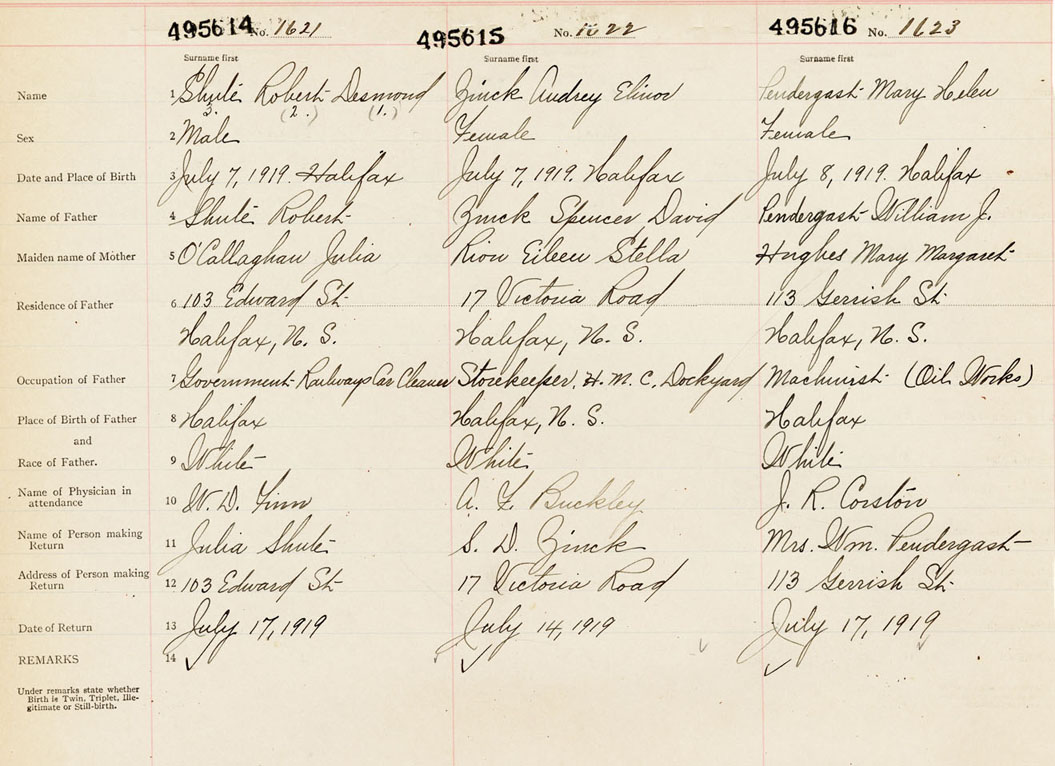 495614 No. 1621 495615 No. 1622 495616 No. 1623
Surname first Surname first Surname first
Name 1 Shute Robert Desmond Zinck Audrey Elinor Pendergast Mary Helen
3. (2.) (1.)
Sex 2 Male Female Female
Date and Place of Birth 3 July 7, 1919. Halifax July 7, 1919. Halifax July 8, 1919. Halifax
Name of Father 4 Shute Robert Zinck Spencer David Pendergast William J.
Maiden name of Mother 5 O'Callaghan Julia Riou Eileen Stella Hughes Mary Margaret
Residence of Father 6 103 Edward St 17 Victoria Road 113 Gerrish St.
Halifax, N. S. Halifax, N. S. Halifax, N. S.
Occupation of Father 7 Government Railways Car Cleaner Storekeeper, H. M. C. Dockyard Machinist (Oil Works)
Place of Birth of Father 8 Halifax Halifax, N. S. Halifax
and
Race of Father. 9 White White White
Name of Physician in
attendance 10 W. D. Finn A. F. Buckley J. R. Corston
Name of Person making
Return 11 Julia Shute S. D. Zinck Mrs. Wm. Pendergast
Address of Person making
Return 12 103 Edward St 17 Victoria Road 113 Gerrish St.
Date of Return 13 July 17, 1919 July 14, 1919 July 17, 1919
REMARKS 14
Under remarks state whether
Birth is Twin, Triplet, Ille-
gitimate or Still-birth.